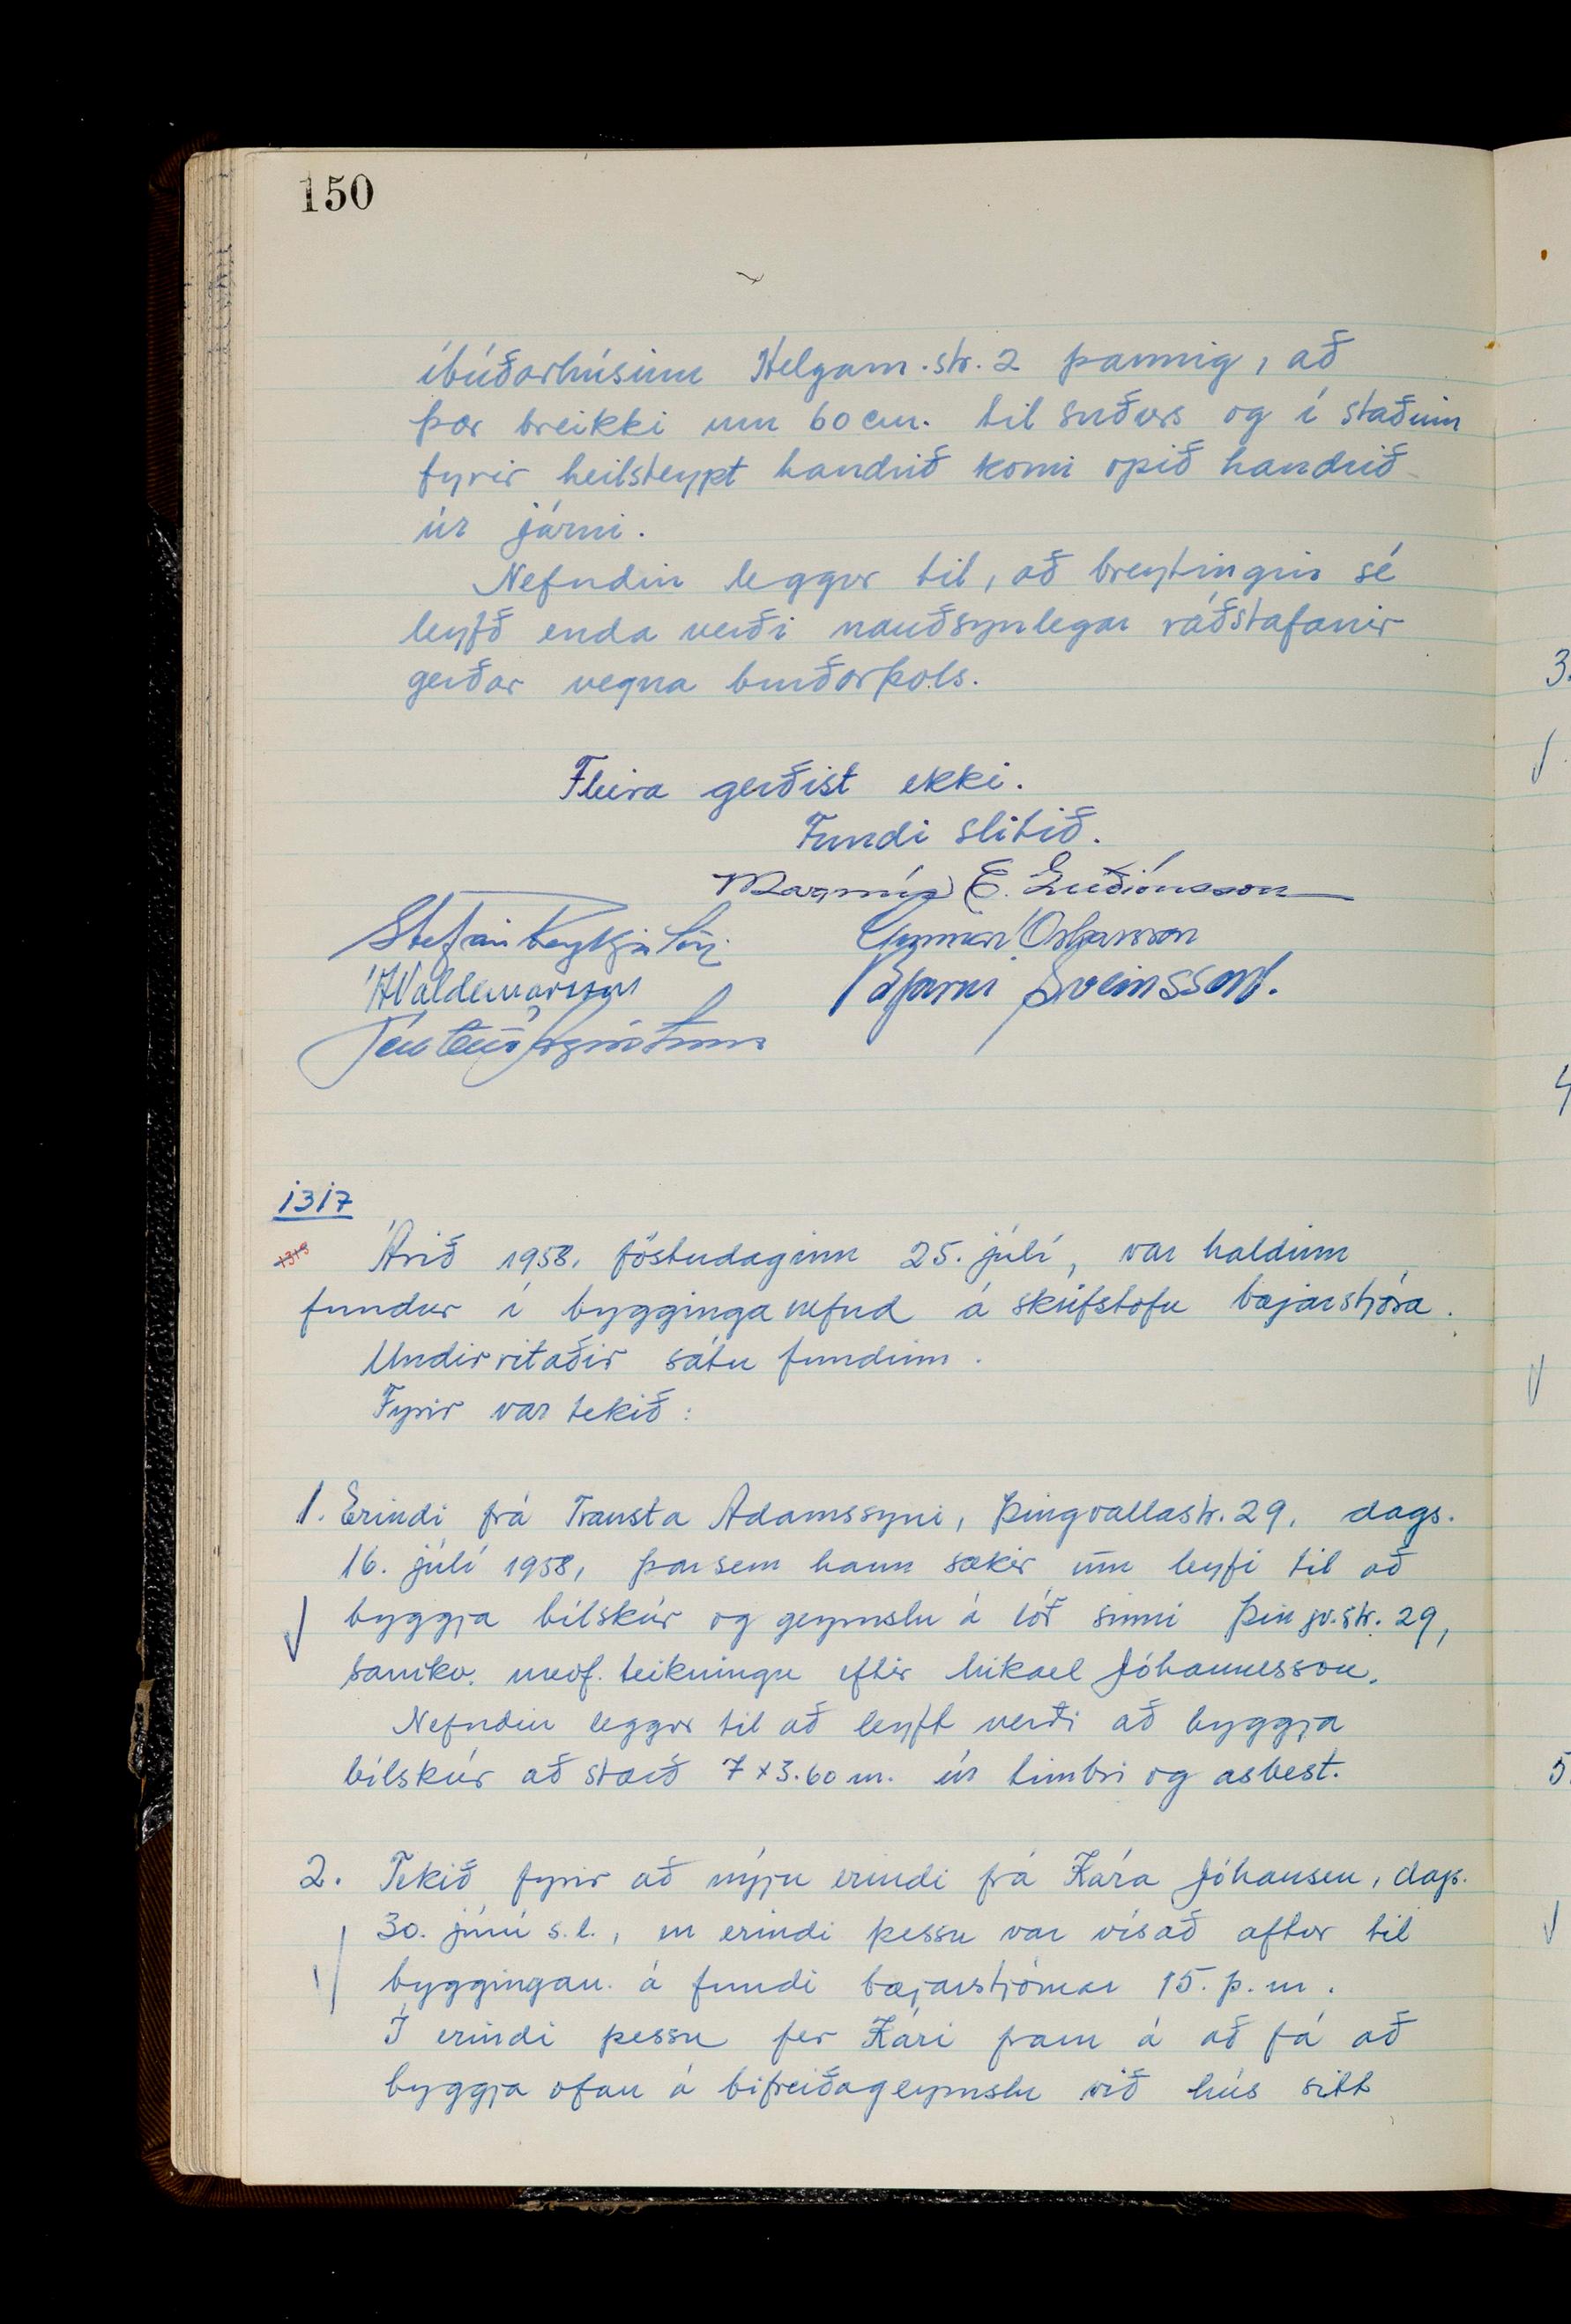 150
íbúðarhúsinu Helgam.str. 2 þannig, að
þær breikki um 60 cm. til suðurs og í staðinn
fyrir heilsteypt handrið komi opið handrið
úr járni.
Nefndin leggur til, að breytingin sé
leyfð enda verði nauðsynlegar ráðstafanir
gerðar vegna burðarþols.
Fleira gerðist ekki.
Fundi slitið.
Magnús E. Guðjónsson
Stefán Reykjalín
Gunnar Óskarsson
Bjarni Sveinsson.
1317
1319
Árið 1958, föstudaginn 25. júlí, var haldinn
fundur í bygginganefnd á skrifstofu bæjarstjóra.
Undirritaðir sátu fundinn.
Fyrir var tekið:
1. Erindi frá Trausta Adamssyni, Þingvallastr. 29, dags.
16. júlí 1958, þar sem hann sækir um leyfi til að
byggja bílskúr og geymslu á lóð sinni Þingv.str. 29,
samkv. meðf. teikningu eftir Mikael Jóhannesson.
Nefndin leggur til að leyft verði að byggja
bílskúr að stærð 7 x 3.60 m. úr timbri og asbest.
2. Tekið fyrir að nýju erindi frá Kára Jóhansen, dags.
30. júní s.l., en erindi þessu var vísað aftur til
byggingan. á fundi bæjarstjórnar 15. þ.m.
Í erindi þessu fer Kári fram á að fá að
byggja ofan á bifreiðageymslu við hús sitt
3.
4
5.